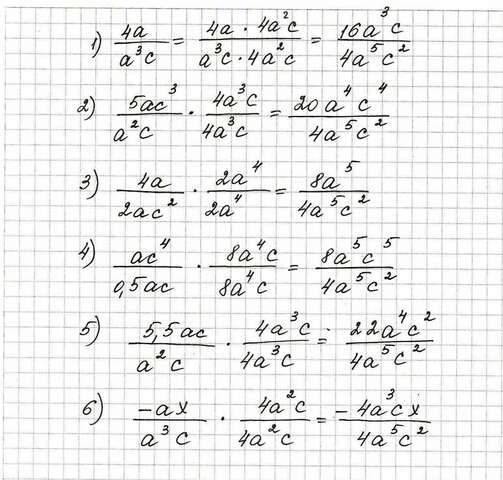 1) 4a/a³c = 4a · 4a²c/a³c · 4a²c = 16a³c/4a⁵c²
2) 5ac³/a²c · 4a³c/4a³c = 20a⁴c⁴/4a⁵c²
3) 4a/2ac² · 2a⁴/2a⁴ = 8a⁵/4a⁵c²
4) ac⁴/0,5ac · 8a⁴c/8a⁴c = 8a⁵c⁵/4a⁵c²
5) 5,5ac/a²c · 4a³c/4a³c = 22a⁴c²/4a⁵c²
6) -ax/a³c · 4a²c/4a²c = -4a³cx/4a⁵c²